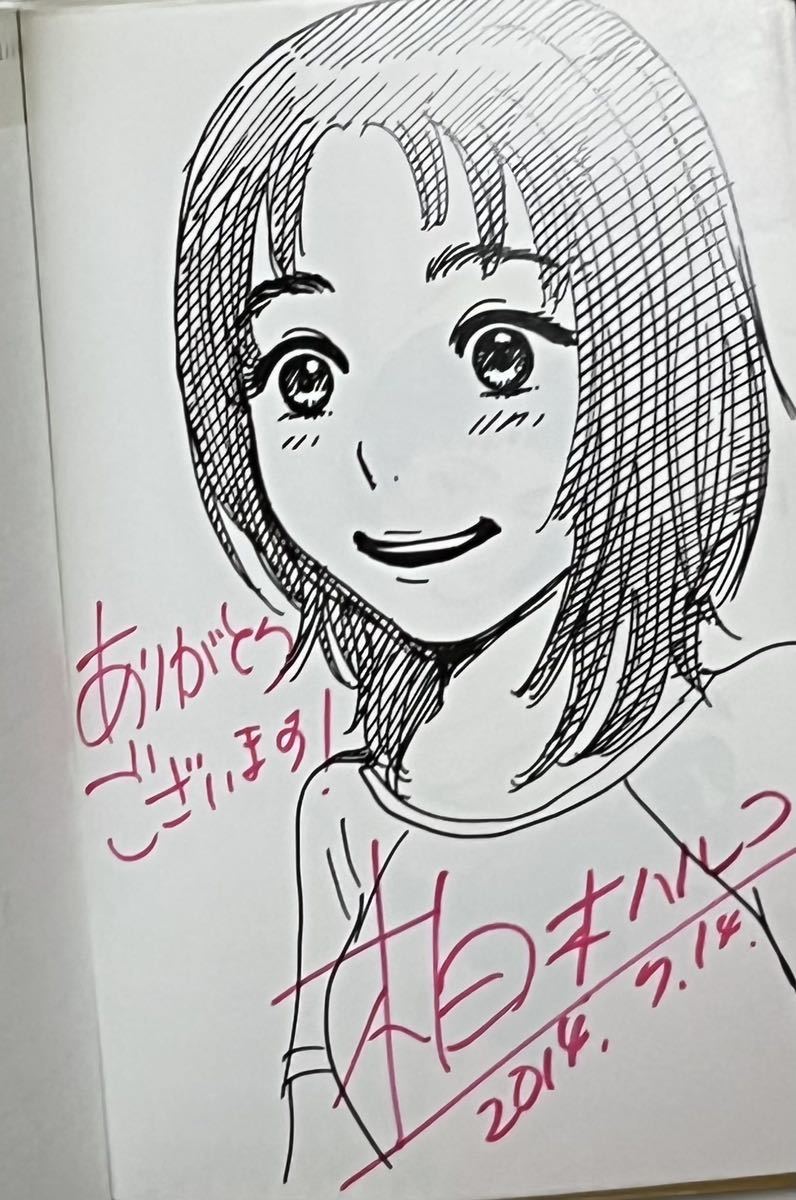 ありがとう
ございます!
柏木ハルコ
2014. 7.14.